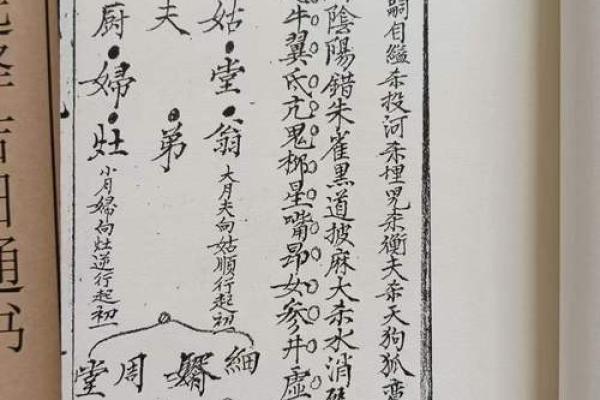 嗣自縊杀投河杀埋兒杀衡夫杀天狗狐
陰陽錯朱雀黑道披麻大杀水消
牛翼氐亢鬼柳星嘴昴女参井虛
姑堂翁
大月夫向姑順行起初一
夫弟
厨婦灶
小月婦向灶逆行起初一
細婿周堂
通书